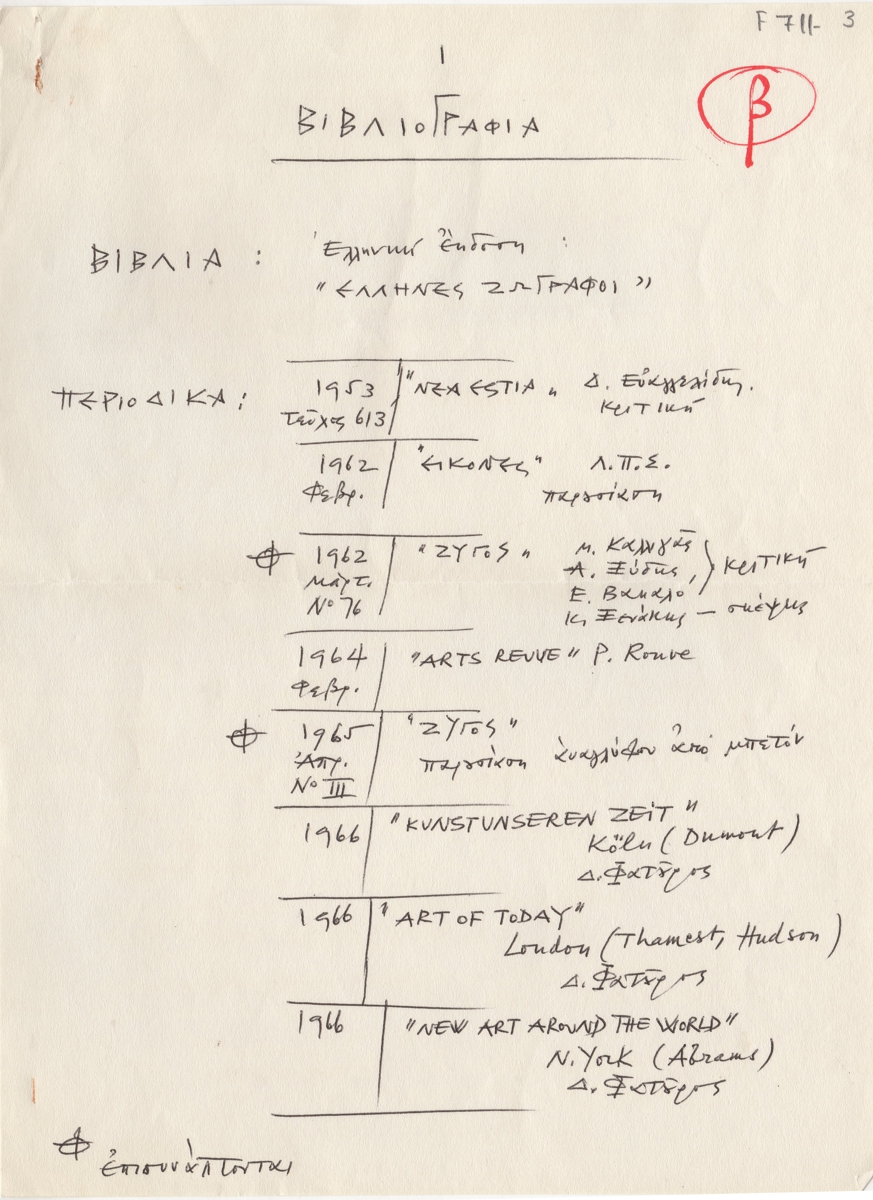 F 711- 3
1
β
ΒΙΒΛΙΟΓΡΑΦΙΑ
ΒΙΒΛΙΑ : Ἑλληνική ἔκδοση :
“ΕΛΛΗΝΕΣ ΖΩΓΡΑΦΟΙ”
ΠΕΡΙΟΔΙΚΑ:
1953 "ΝΕΑ ΕSΤΙΑ" Δ. Εὐαγγελίδης.
Τεῦχος 613 κριτική
1962 "ΕΙΚΟΝΕς" Λ.Π.Σ.
Φεβρ. παρουσίαση
1962 "ΖΥΓΟΣ" Μ. Καλλιγᾶς
Μάρτ. Α. Ξύδης, κριτική
Νο 76 Ε. Βακαλο
Κ. Ξενάκης — σκέψεις
1964 "ARTS REVUE" P. Rouve
Φεβρ.
1965 "ΖΥΓΟΣ"
Ἀπρ. παρουσίαση ἀναγλύφου ἀπό μπετόν
Νο III
1966 "KUNSTUNSEREN ZEIT"
Köln (Dumont)
Δ. Φατοῦρος
1966 "ART OF TODAY"
London (Thamest, Hudson)
Δ. Φατοῦρος
1966 "NEW ART AROUND THE WORLD"
N. York (Abrams)
Δ. Φατοῦρος
ἐπισυνάπτονται